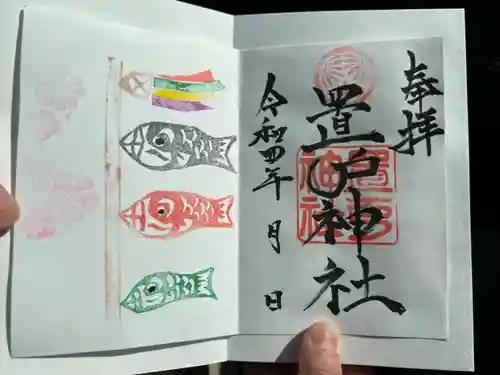 奉拝
置戸神社
置戸神社
令和四年 月 日